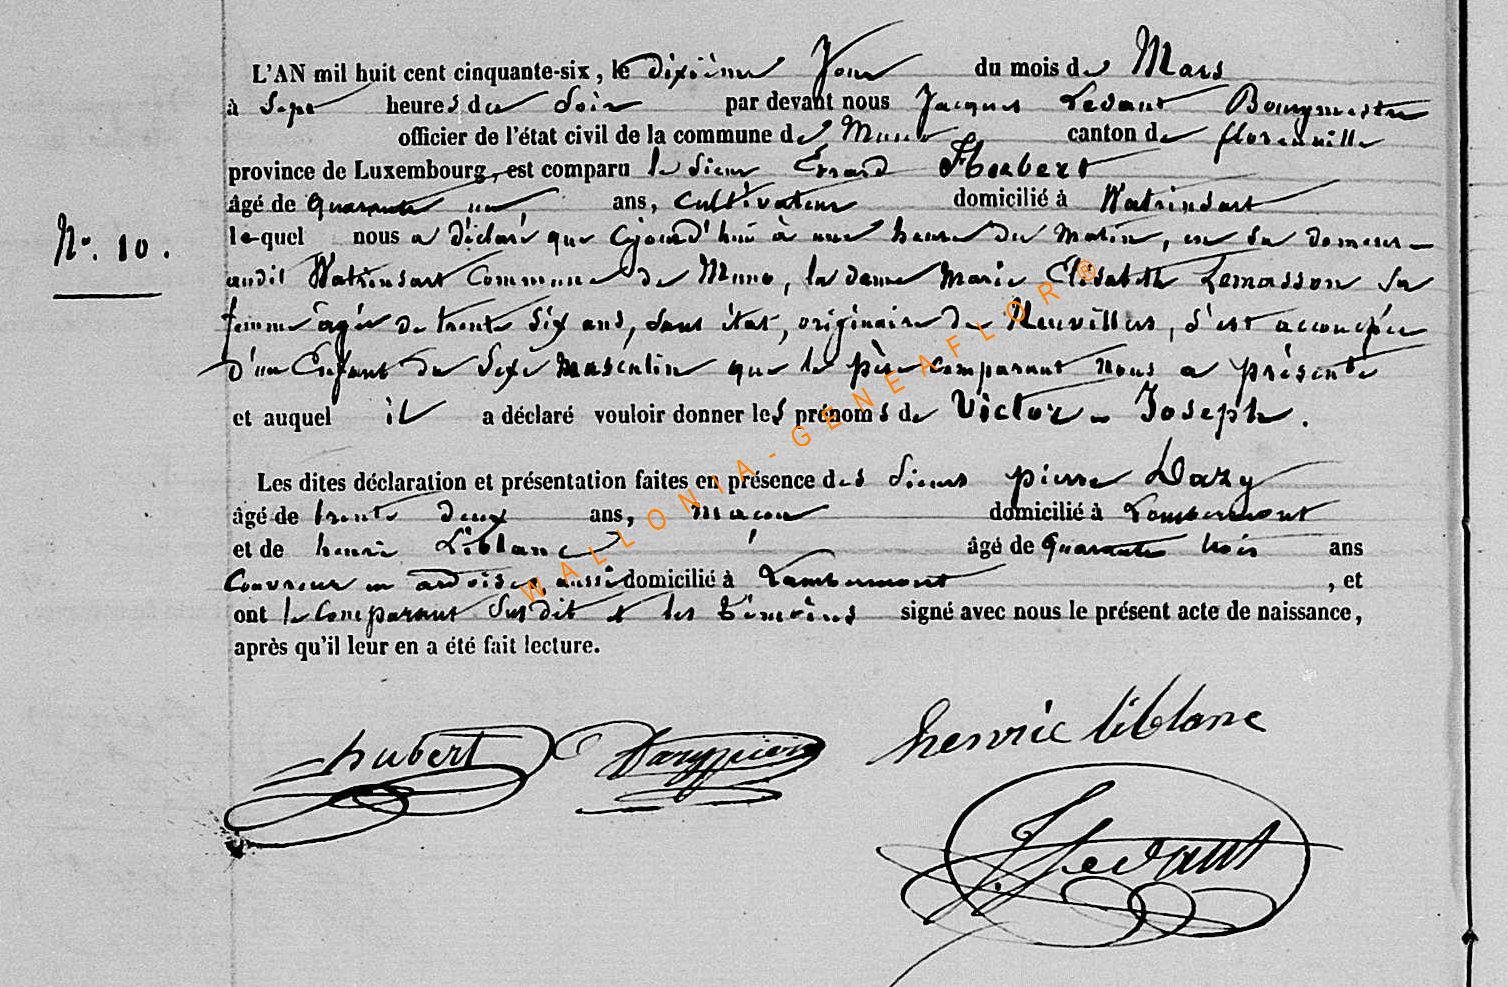 L'AN mil huit cent cinquante-six, le dixième Jour du mois de Mars
à Sept heures du Soir par devant nous Jacques Ledant Bourgmestre
officier de l'état civil de la commune de Muno canton de florenville
province de Luxembourg, est comparu le Sieur Errard Hubert
âgé de quarante un ans, cultivateur domicilié à Watrinsart
lequel nous a déclaré que cejourd'hui à une heure du matin, en sa demeure
N°. 10. audit Watrinsart Commune de Muno, la dame Marie Elisabeth Lemasson sa
femme âgée de trente six ans, sans état, originaire de Neuvillers, s'est accouchée
d'un Enfant du Sexe masculin que le père comparant nous a présenté
et auquel il a déclaré vouloir donner les prénoms de Victor - Joseph.
Les dites déclaration et présentation faites en présence des Sieurs pierre Dazy
âgé de trente deux ans, maçon domicilié à Lambermont
et de henri Liblanc âgé de quarante trois ans
Couvreur en ardoises, aussi domicilié à Lambermont , et
ont le comparant Susdit et les témoins signé avec nous le présent acte de naissance,
après qu'il leur en a été fait lecture.
hubert Dazy pierre henrie liblanc
J Ledant
WALLONIA-GENEAFLOR®